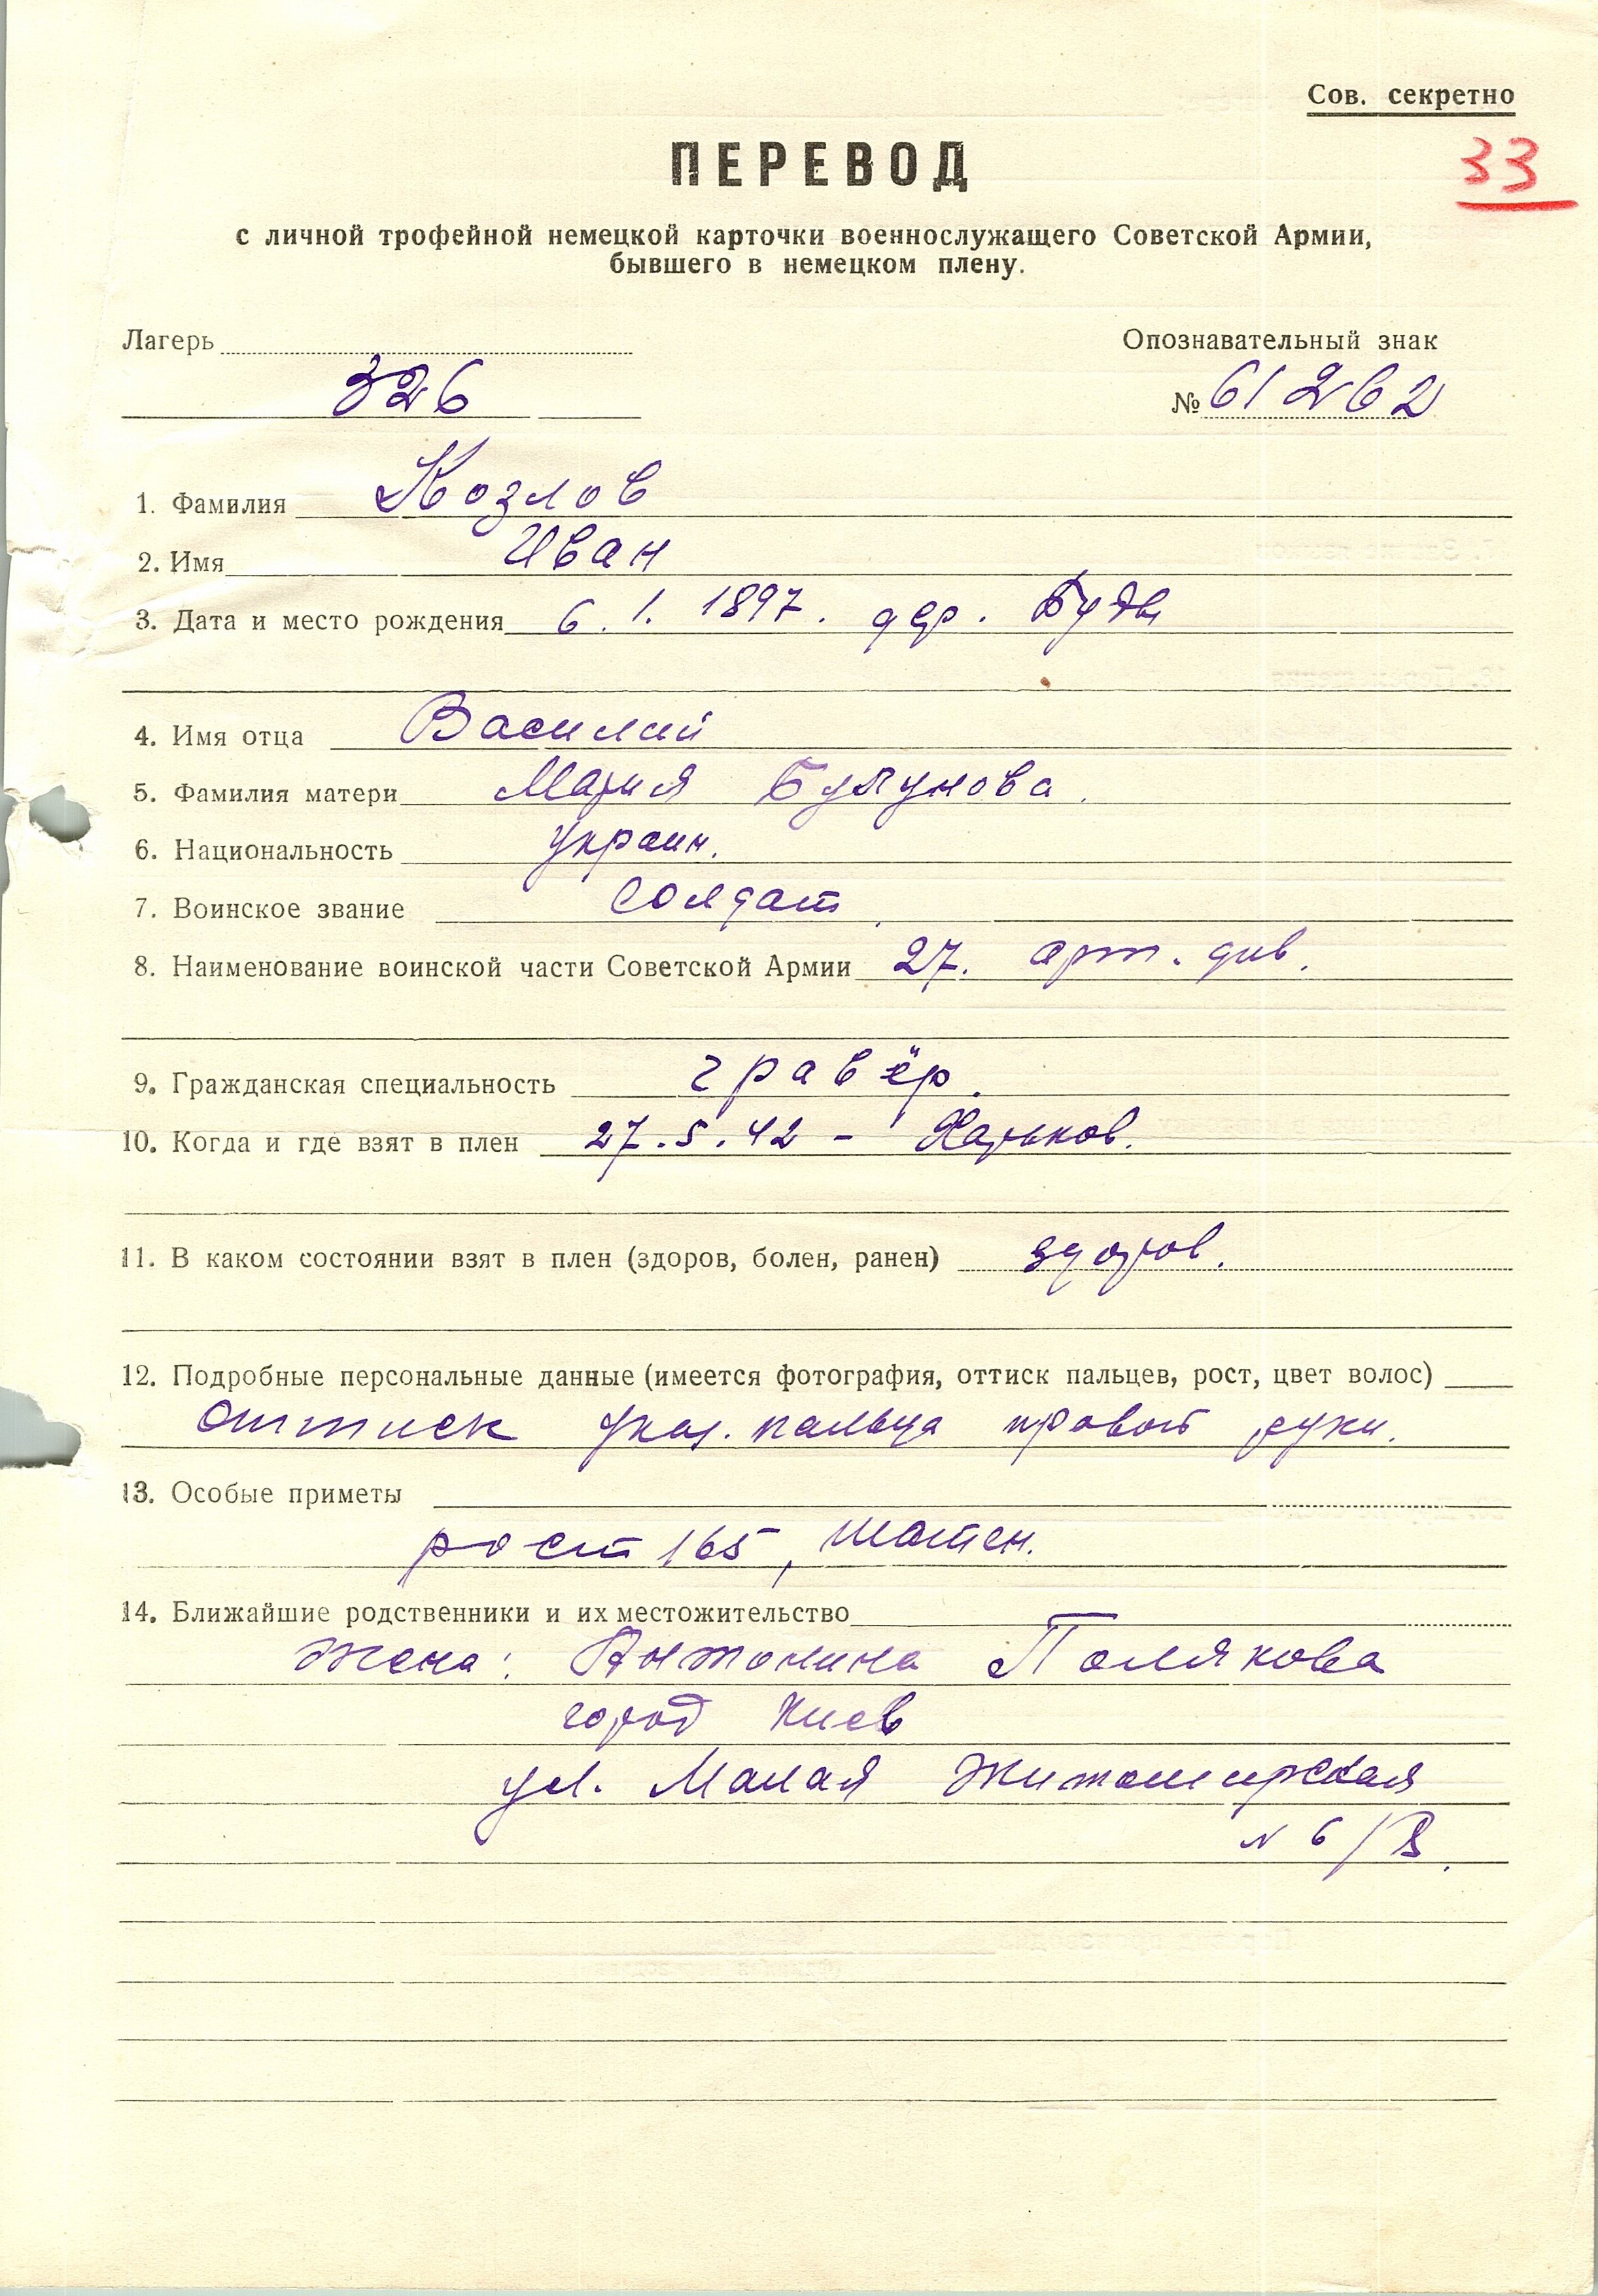 Сов. секретно
33
ПЕРЕВОД
с личной трофейной немецкой карточки военнослужащего Советской Армии,
бывшего в немецком плену.
Лагерь Опознавательный знак
326 № 61262
1. Фамилия Козлов
2. Имя Иван
3. Дата и место рождения 6. 1. 1897. дер. Буды
4. Имя отца Василий
5. Фамилия матери Мария
6. Национальность украин.
7. Воинское звание солдат
8. Наименование воинской части Советской Армии 27. арт. див.
9. Гражданская специальность гравёр.
10. Когда и где взят в плен 27.5.42 – Харьков.
11. В каком состоянии взят в плен (здоров, болен, ранен) здоров.
12. Подробные персональные данные (имеется фотография, оттиск пальцев, рост, цвет волос)
Оттиск указ. пальца правой руки.
13. Особые приметы
рост 165, шатен.
14. Ближайшие родственники и их местожительство
жена: Антонина Полякова
город Киев
ул. Малая Житомирская
№ 6/В.